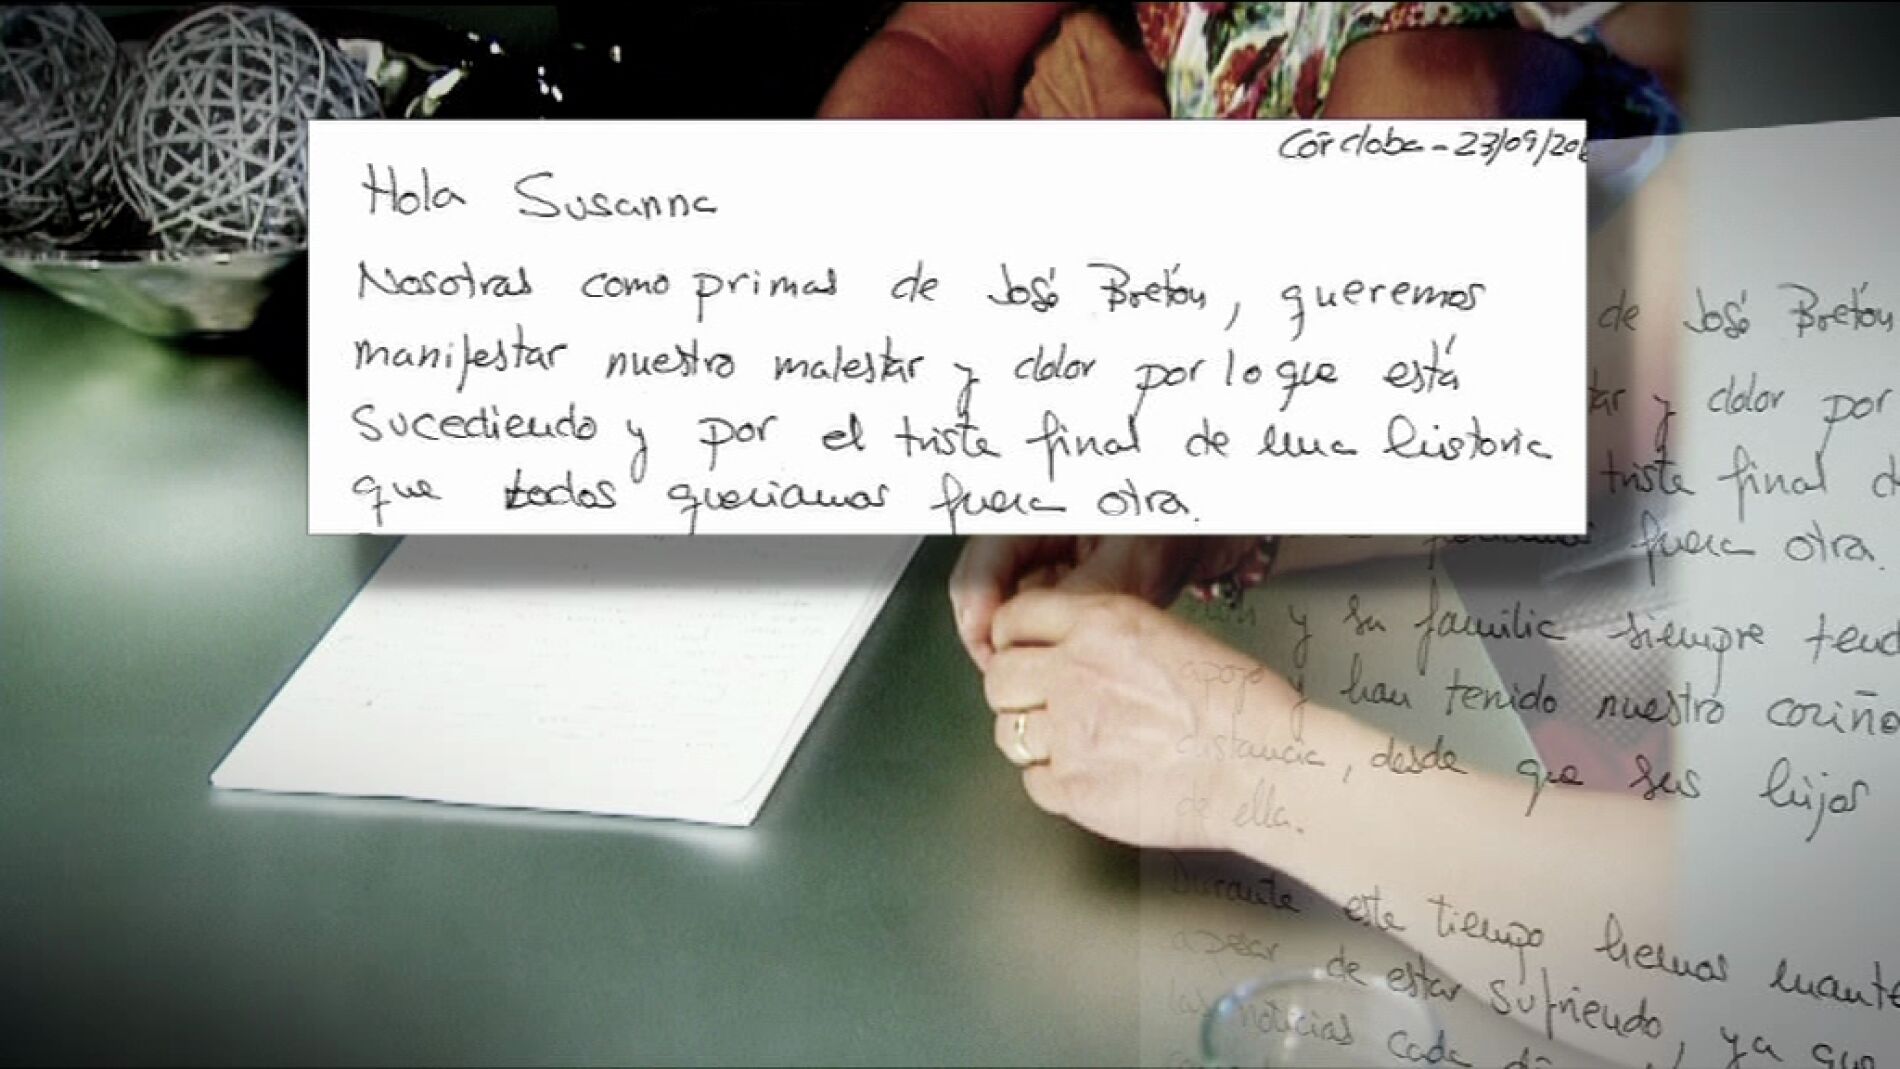 Córdoba - 23/09/20
Hola Susanna
Nosotras como primas de José Bretón, queremos
manifestar nuestro malestar y dolor por lo que está
sucediendo y por el triste final de una historia
que todos queriamos fuera otra.
de José Bretón
tar y dolor por
triste final d
fuera otra.
y su familia siempre tend
apoyo y han tenido nuestro cariño
distancia, desde que sus hijos
de ella.
Durante este tiempo hemos mante
apesar de estar sufriendo, ya que
las noticias cada